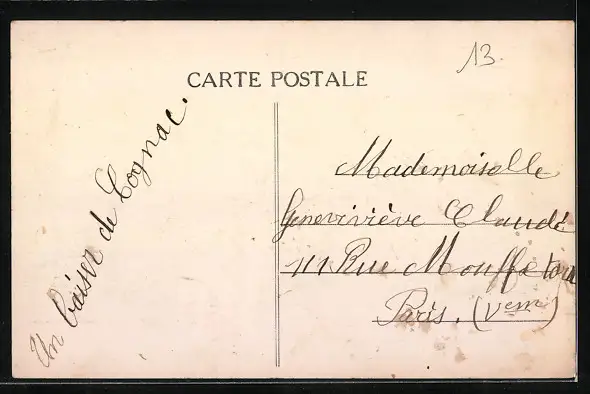 13.
CARTE POSTALE
Un baiser de Cognac.
Mademoiselle
Geneviviève Claudé
111 Rue Mouffetard
Paris. (Vem)